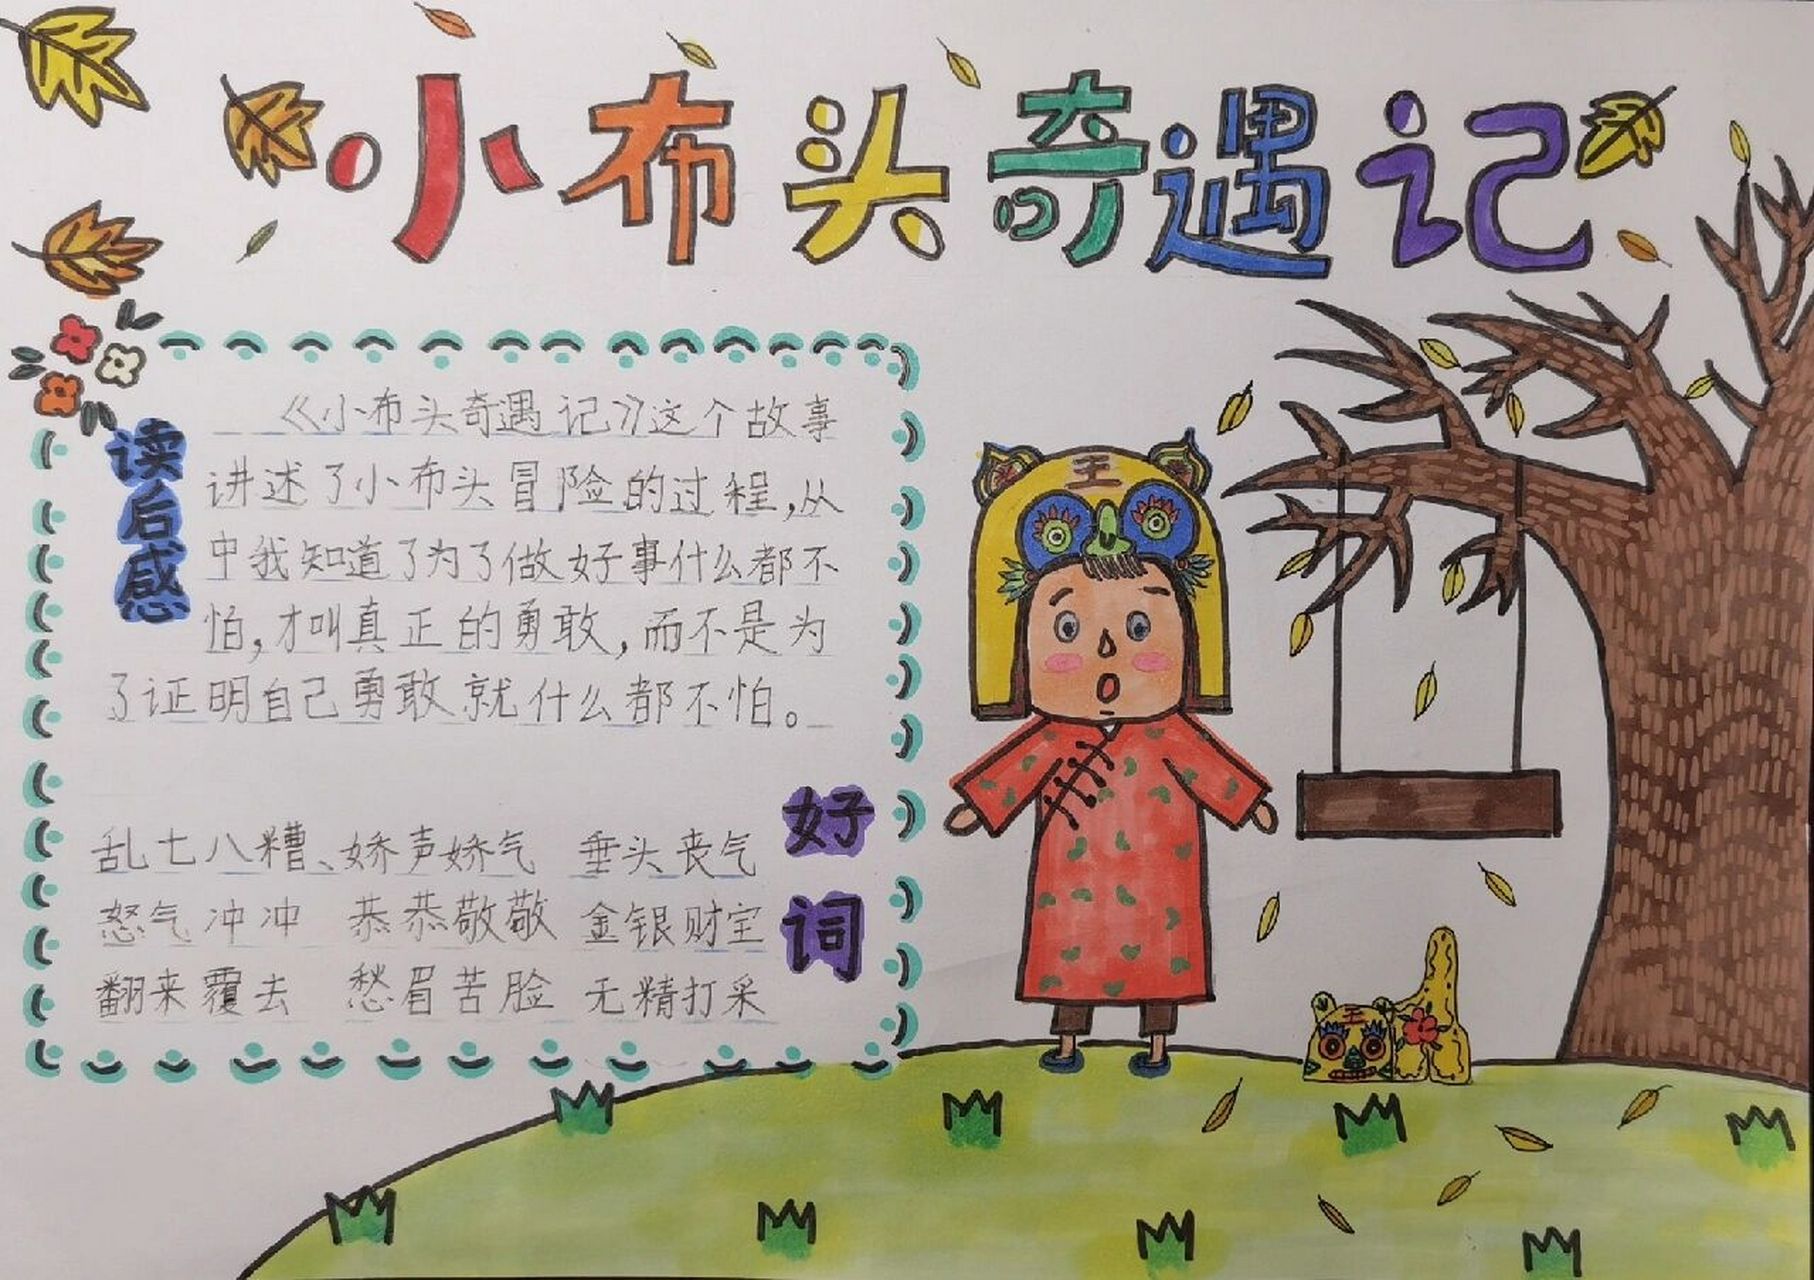 小布头奇遇记
读后感
《小布头奇遇记》这个故事
讲述了小布头冒险的过程,从
中我知道了为了做好事什么都不
怕,才叫真正的勇敢,而不是为
了证明自己勇敢就什么都不怕。
好词
乱七八糟、娇声娇气 垂头丧气
怒气冲冲 恭恭敬敬 金银财宝
翻来覆去 愁眉苦脸 无精打采
王
王